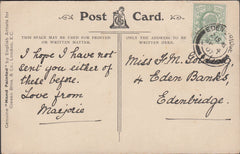 Post Card.
THIS SPACE MAY BE USED FOR PRINTED
OR WRITTEN MATTER.
ONLY THE ADDRESS TO BE
WRITTEN HERE.
I hope I have not
sent you either of
these before.
Love from
Marjorie
Miss F.M.
4 Eden Banks,
Edenbridge.